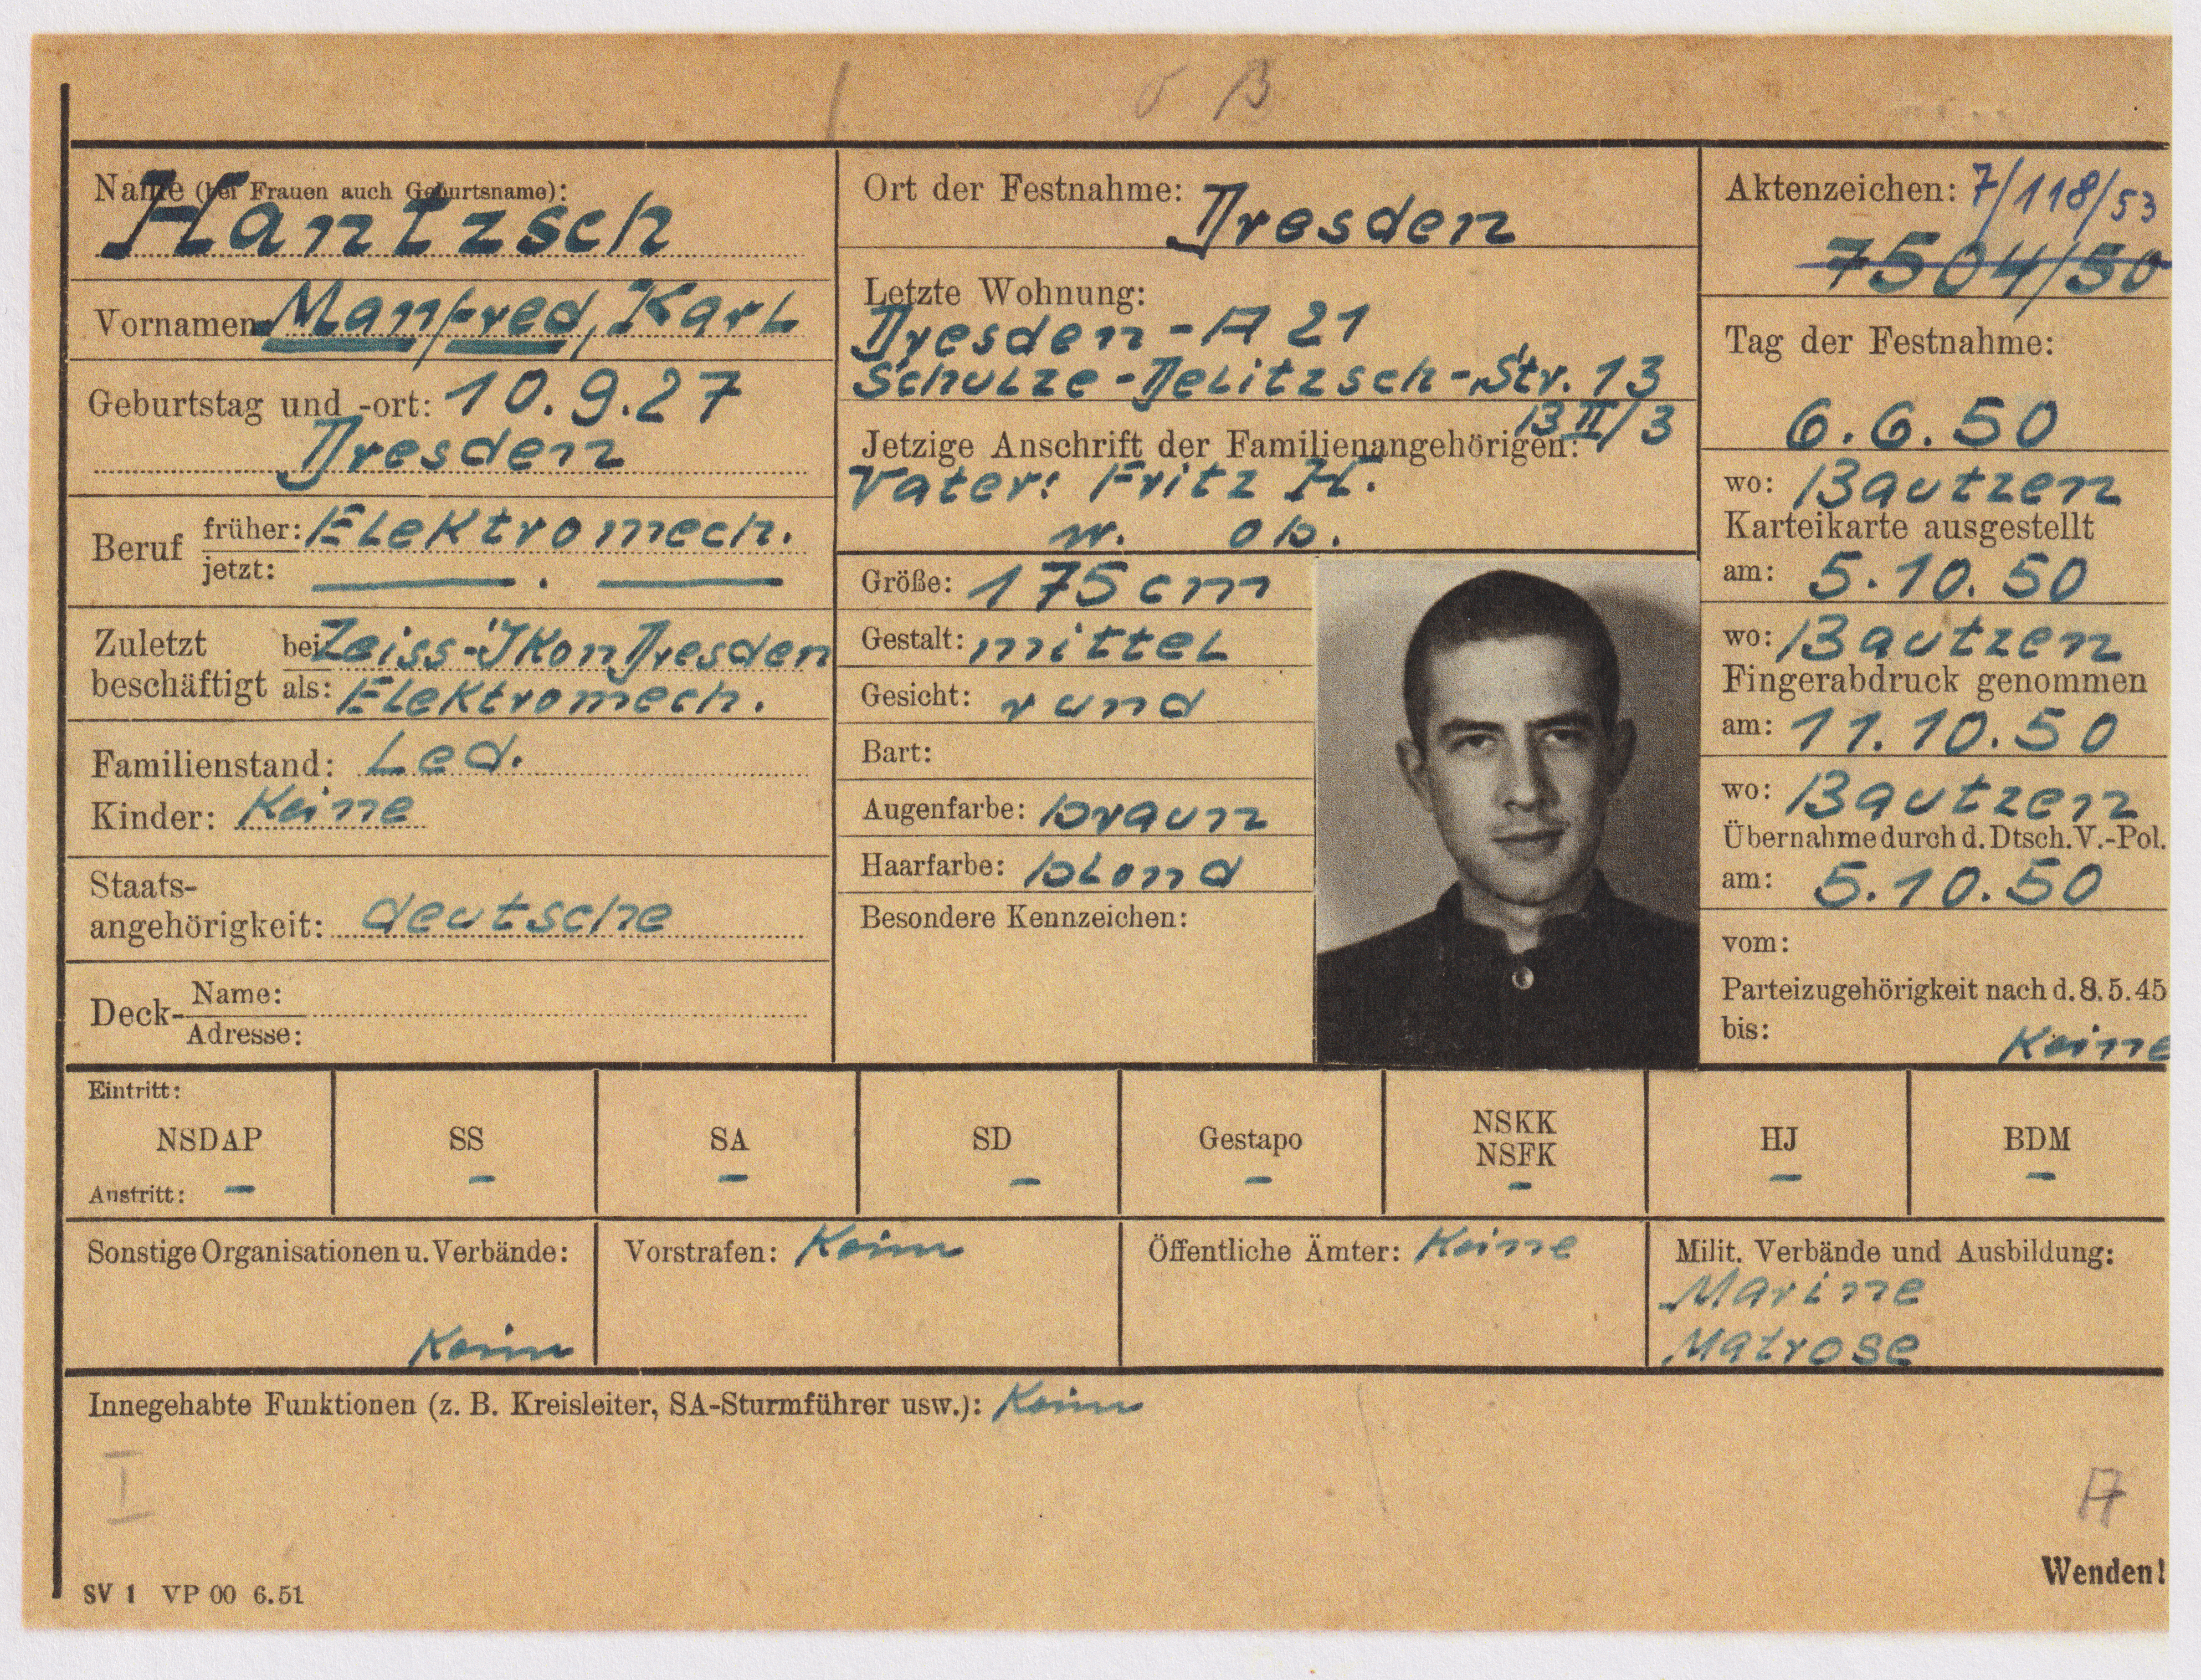 B
Name (bei Frauen auch Geburtsname):
Hantzsch
Vornamen Manfred, Karl
Geburtstag und -ort: 10.9.27
Dresden
Beruf
früher: Elektromech.
jetzt: — . —
Zuletzt beschäftigt
bei Zeiss-Ikon Dresden
als: Elektromech.
Familienstand: Led.
Kinder: Keine
Staats-
angehörigkeit: deutsche
Deck-
Name:
Adresse:
Ort der Festnahme: Dresden
Letzte Wohnung:
Dresden-A 21
Schulze-Delitzsch-Str. 13
B II/3
Jetzige Anschrift der Familienangehörigen:
Vater: Fritz H.
w. ob.
Größe: 175 cm
Gestalt: mittel
Gesicht: rund
Bart:
Augenfarbe: braun
Haarfarbe: blond
Besondere Kennzeichen:
Aktenzeichen: 7/118/53
7504/50
Tag der Festnahme:
6.6.50
wo: Bautzen
Karteikarte ausgestellt
am: 5.10.50
wo: Bautzen
Fingerabdruck genommen
am: 11.10.50
wo: Bautzen
Übernahme durch d. Dtsch. V.-Pol.
am: 5.10.50
vom:
Parteizugehörigkeit nach d. 8.5.45
bis:
Keine
Eintritt:
NSDAP
Austritt: –
SS
–
SA
–
SD
–
Gestapo
–
NSKK
NSFK
–
HJ
–
BDM
–
Sonstige Organisationen u. Verbände:
Keine
Vorstrafen: Keine
Öffentliche Ämter: Keine
Milit. Verbände und Ausbildung:
Marine
Matrose
Innegehabte Funktionen (z. B. Kreisleiter, SA-Sturmführer usw.): Keine
I
A
Wenden!
SV 1 VP 00 6.51